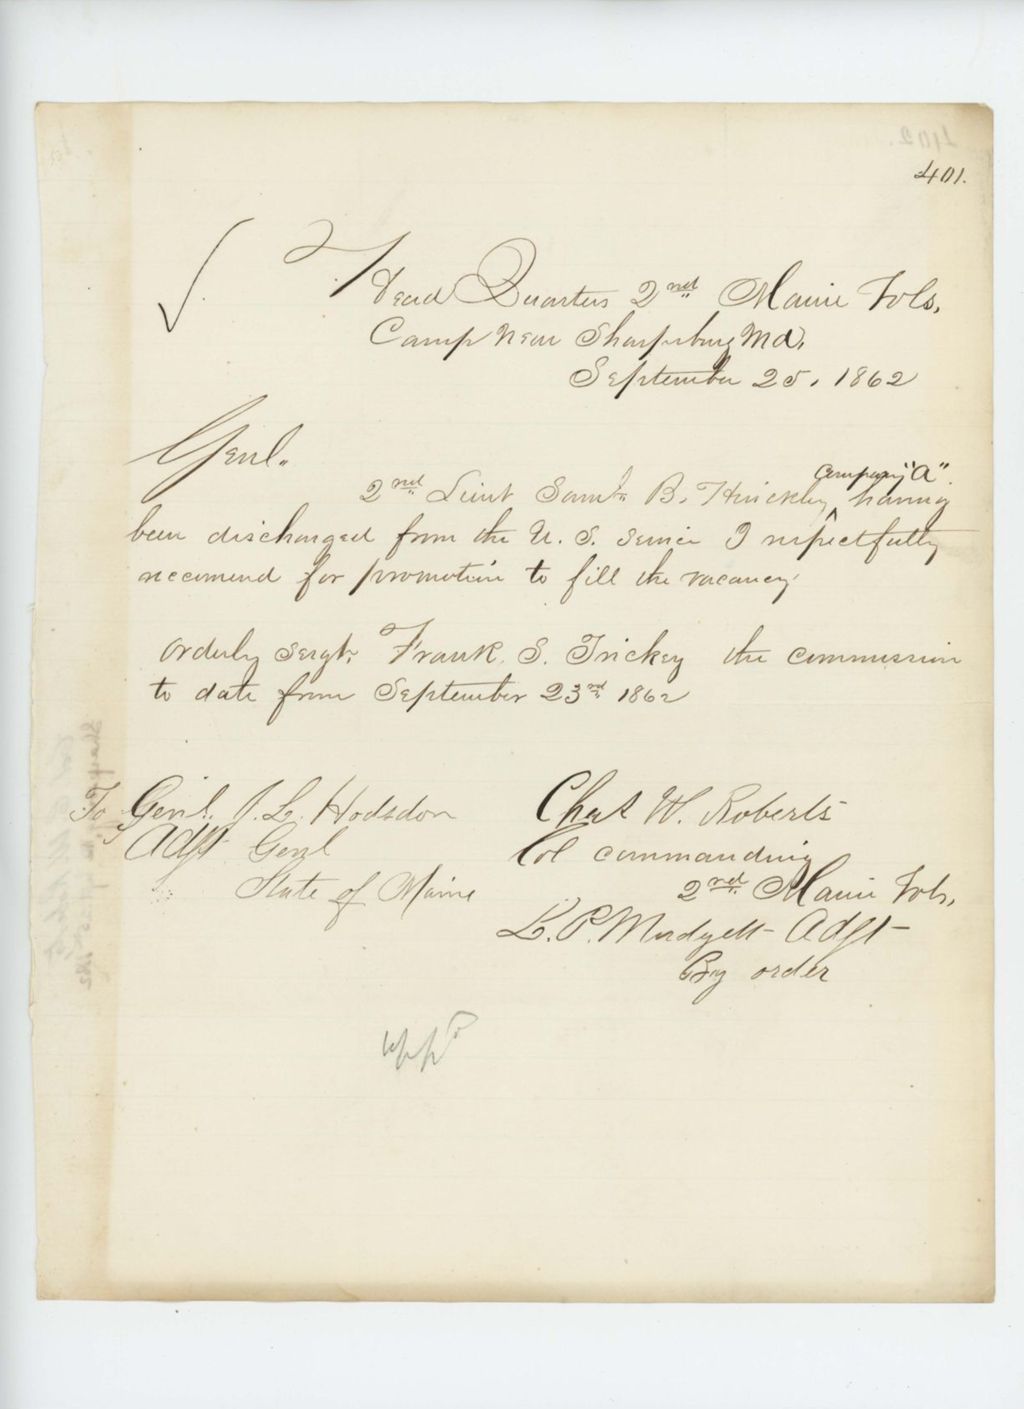 401.
Head Quarters 2nd Maine Vols,
Camp Near Sharpsburg Md,
September 25, 1862
Genl.
Company "A"
2nd Lieut Saml. B. Hinckley, having
been discharged from the U. S. Service I respectfully
reccomend for promotion to fill the vacancy
Orderly Sergt. Frank. S. Trickey the commission
to date from September 23rd 1862
To Genl. J. L. Hodsdon
Adjt Genl
State of Maine
Chas W. Roberts
Col commanding
2nd Maine Vols,
L. P. Mudgett Adjt
By order